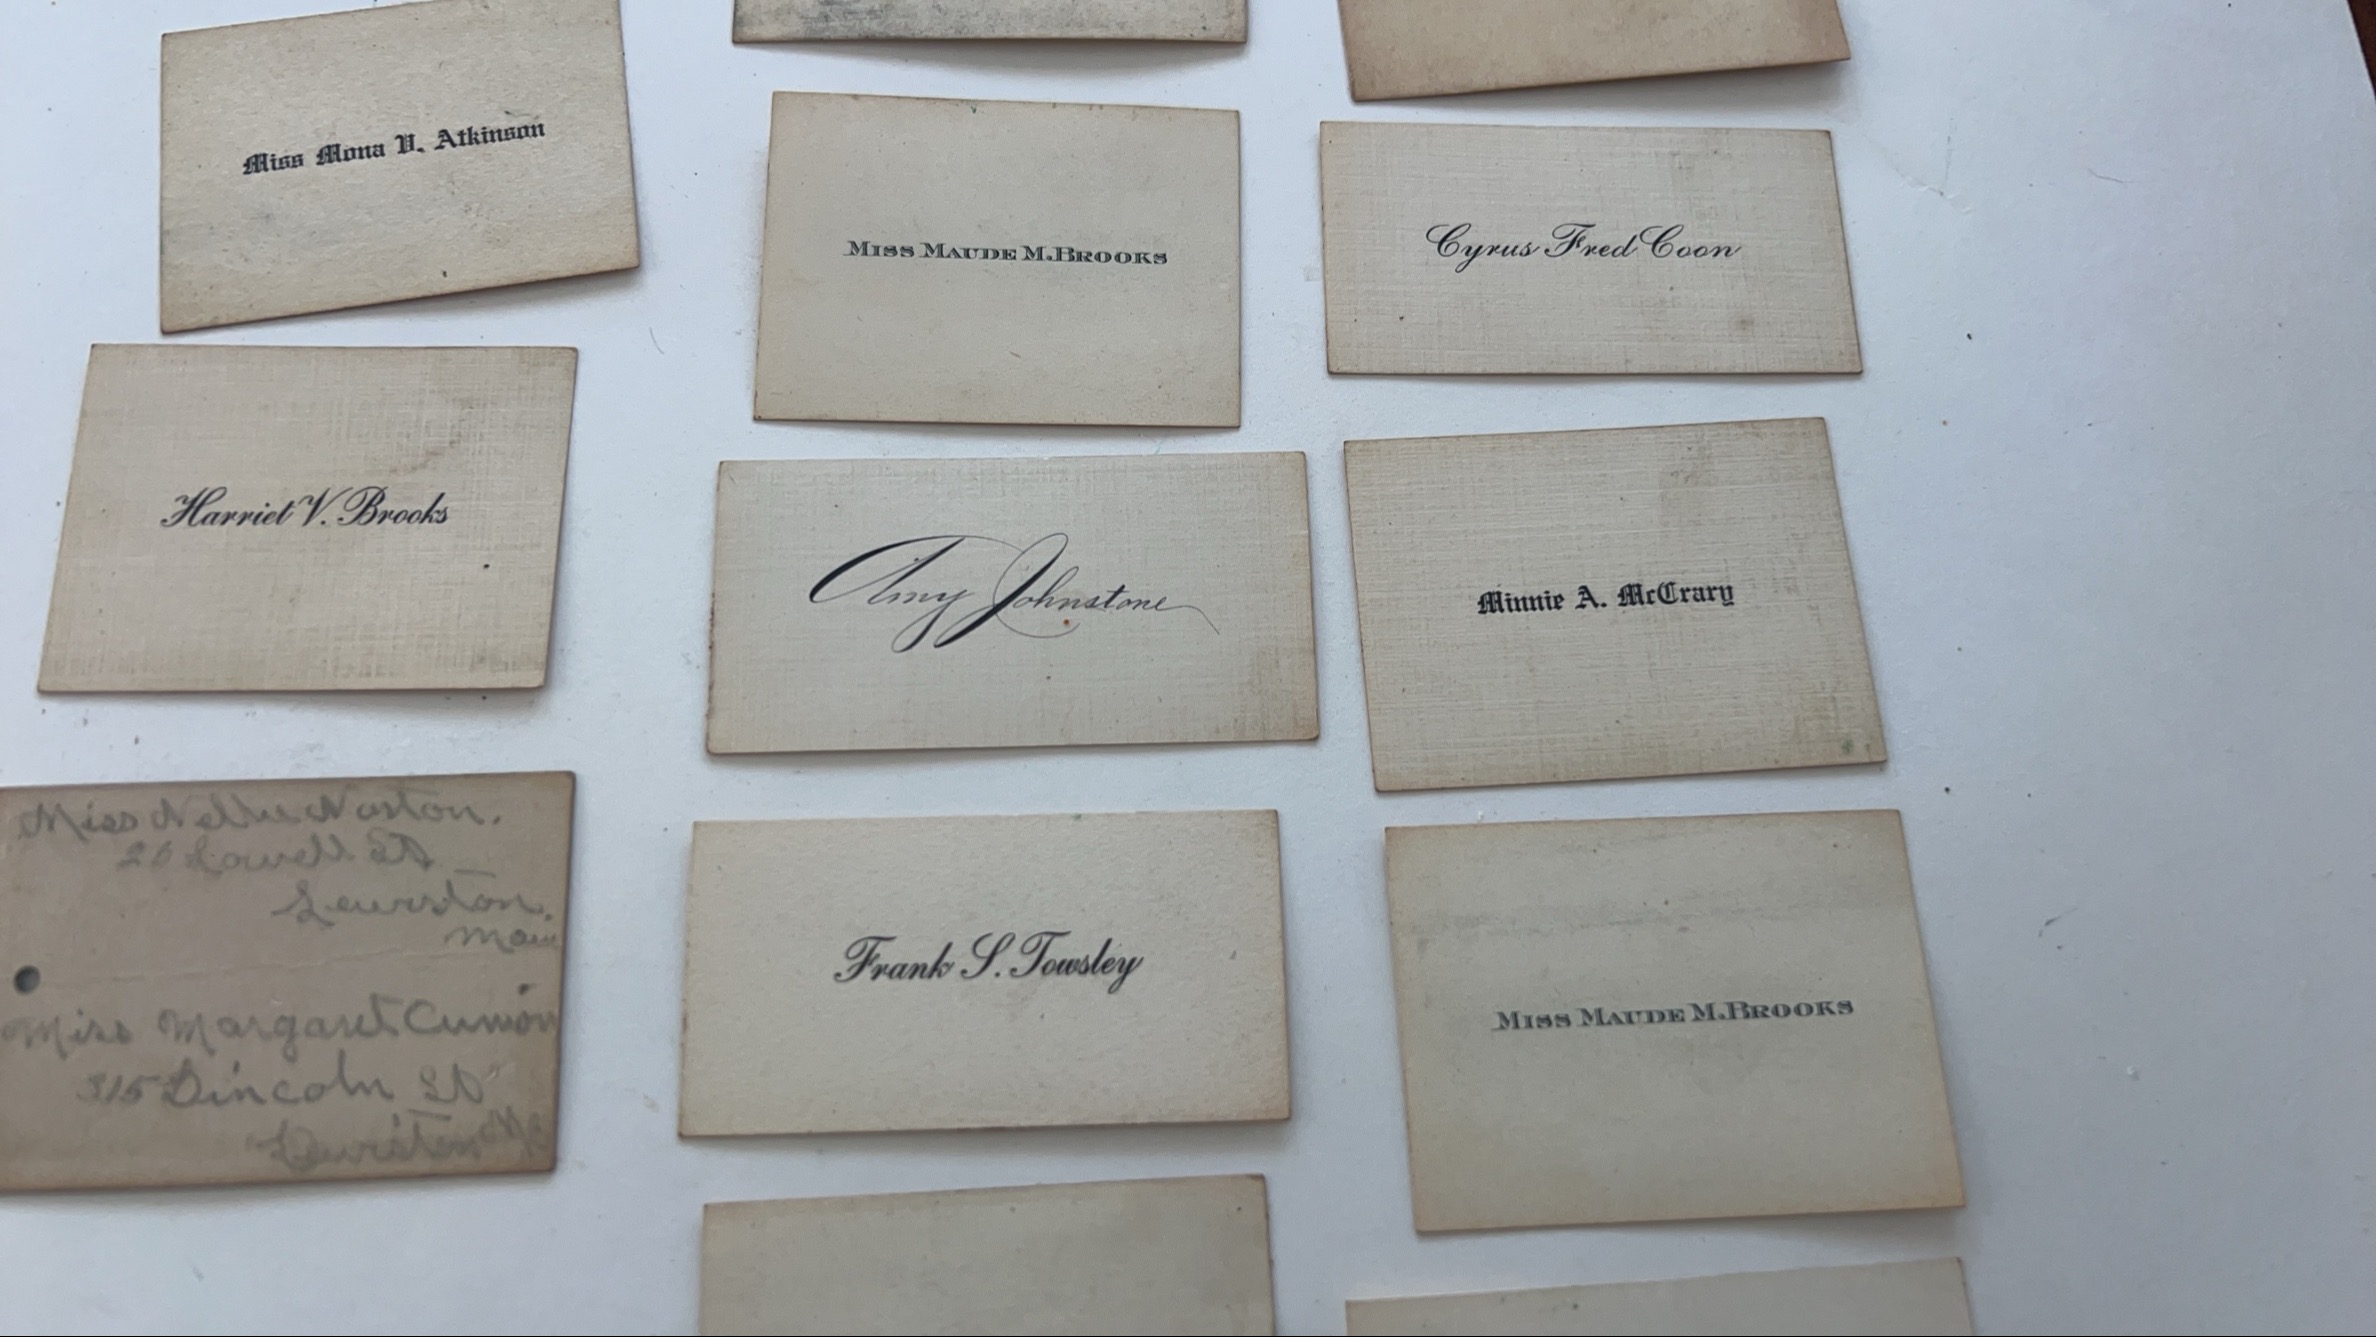 Miss Mona V. Atkinson
MISS MAUDE M. BROOKS
Cyrus Fred Coon
Harriet V. Brooks
Amy Johnstone
Minnie A. McCrary
Miss Nellie
Lowell St
Lewiston.
Frank S. Towsley
MISS MAUDE M. BROOKS
Miss Margaret
315 Lincoln St
Lewiston